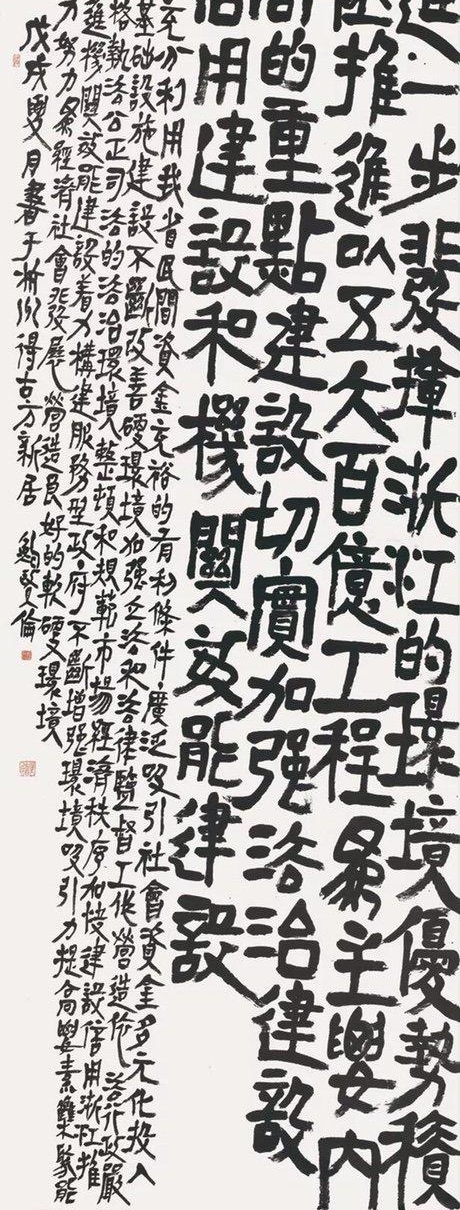 進一步發揮浙江的環境優勢積
極推進以五大百億工程為主要內
容的重點建設切實加強法治建設
信用建設和機關效能建設
充分利用我省民間資金充裕的有利條件廣泛吸引社會資金多元化投入
基礎設施建設不斷改善硬環境加強立法和法律監督工作營造依法行政嚴
格執法公正司法的法治環境整頓和規範市場經濟秩序加快建設信用浙江推
進機關效能建設着力構建服務型政府不斷增強環境吸引力提高要素集聚能
力努力為經濟社會發展營造良好的軟硬環境
戊戌夏月書于杭州得古方新居 鮑賢倫